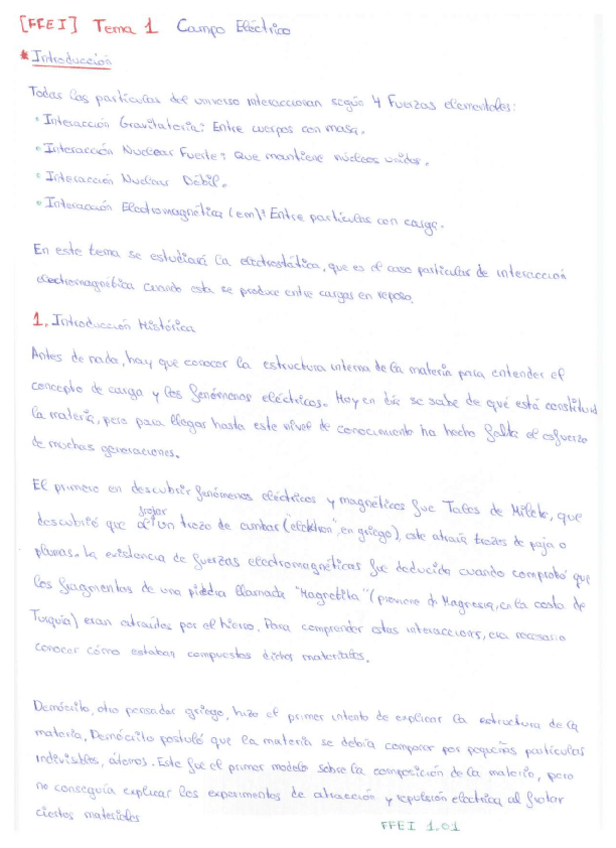 [FFEI] Tema 1 Campo Eléctrico
* Introducción
Todas las partículas del universo interaccionan según 4 Fuerzas elementales:
• Interacción Gravitatoria: Entre cuerpos con masa.
• Interacción Nuclear Fuerte: Que mantiene núcleos unidos.
• Interacción Nuclear Débil.
• Interacción Electromagnética (em): Entre partículas con carga.
En este tema se estudiará la electrostática, que es el caso particular de interacción
electromagnética cuando esta se produce entre cargas en reposo.
1. Introducción Histórica
Antes de nada, hay que conocer la estructura interna de la materia para entender el
concepto de carga y los fenómenos eléctricos. Hoy en día se sabe de qué está constituida
la materia, pero para llegar hasta este nivel de conocimiento ha hecho falta el esfuerzo
de muchas generaciones.
El primero en descubrir fenómenos eléctricos y magnéticos fue Tales de Mileto, que
frotar
descubrió que al un trozo de ambar ("elektron", en griego), este atraía trozos de paja o
plumas. La existencia de fuerzas electromagnéticas fue deducida cuando comprobó que
los fragmentos de una piedra llamada "Magnetita" (proviene de Magnesia, en la costa de
Turquía) eran atraídos por el hierro. Para comprender estas interacciones, era necesario
conocer cómo estaban compuestos dichos materiales.
Demócrito, otro pensador griego, hizo el primer intento de explicar la estructura de la
materia. Demócrito postuló que la materia se debía componer por pequeñas partículas
indivisibles, átomos. Este fue el primer modelo sobre la composición de la materia, pero
no conseguía explicar los experimentos de atracción y repulsión eléctrica al frotar
ciertos materiales
FFEI 1.01